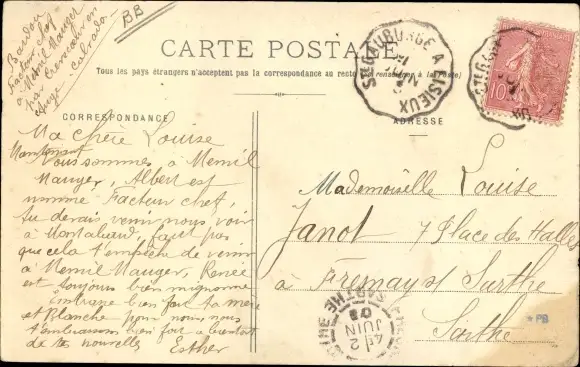 Baudou
Facteur chef
à Mesnil Mauger
par Crevecœur en
Auge Calvados
BB
CARTE POSTALE
Tous les pays étrangers n'acceptent pas la correspondance au recto (se renseigner à la Poste)
CORRESPONDANCE
ADRESSE
Ma chère Louise
Maintenant
nous sommes à Mesnil
Mauger, Albert est
nommé Facteur chef,
tu devais venir nous voir
à faut pas
que cela t'empêche de venir
à Mesnil Mauger, Renée
est toujours bien mignonne
embrasse bien fort ta mère
et Blanche pour nous nous
t'embrassons bien fort à bientot
de tes nouvelles Esther
Mademoiselle Louise
Janot 7 Place des Halles
à Fresnay s/ Sarthe
Sarthe
STE GAUBURGE A LISIEUX
10
SARTHE
4E
2
JUIN
PB